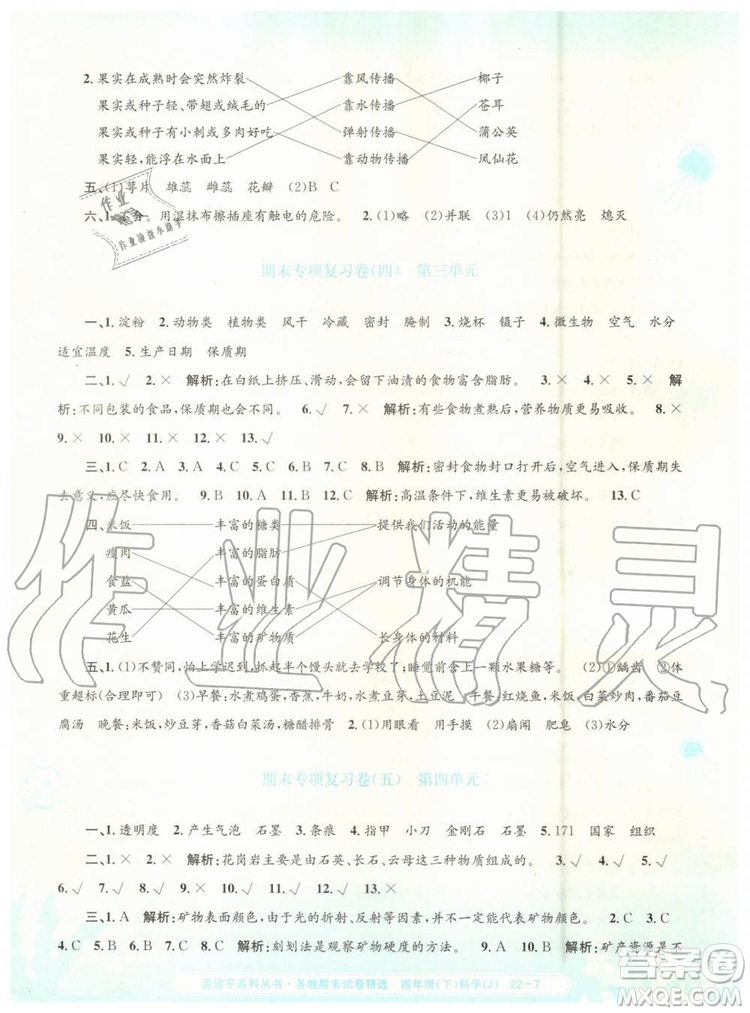 2. 果实在成熟时会突然炸裂 靠风传播 椰子
果实或种子轻、带翅或绒毛的 靠水传播 苍耳
果实或种子有小刺或多肉好吃 弹射传播 蒲公英
果实轻,能浮在水面上 靠动物传播 凤仙花
五、(1)萼片 雄蕊 雌蕊 花瓣 (2)B C
六、1.不分。用湿抹布擦插座有触电的危险。 2.(1)略 (2)并联 (3)1 (4)仍然亮 熄灭
期末专项复习卷(四) 第三单元
一、1.淀粉 2.动物类 植物类 风干 冷藏 密封 腌制 3.烧杯 镊子 4.微生物 空气 水分
适宜温度 5.生产日期 保质期
二、1.√ 2.× 解析:在白纸上挤压、滑动,能留下油渍的食物富含脂肪。 3.× 4.× 5.× 解
析:不同包装的食品,保质期也会不同。 6.√ 7.× 解析:有些食物煮熟后,营养物质更易吸收。 8.×
9.× 10.× 11.× 12.√ 13.√
三、1.C 2.A 3.A 4.C 5.C 6.B 7.B 8.B 解析:密封食物封口打开后,空气进入,保质期失
去意义,应尽快食用。 9.B 10.A 11.C 12.C 解析:高温条件下,维生素更易被破坏。 13.C
四、米饭 丰富的糖类 提供我们活动的能量
瘦肉 丰富的脂肪
食盐 丰富的蛋白质 调节身体的机能
黄瓜 丰富的维生素
花生 丰富的矿物质 长身体的材料
五、1.(1)不赞同,怕上学迟到,抓起半个馒头就去学校了;两顿饭间隙会来一颗水果糖等。 (2)①龋齿 ②体
重超标(合理即可) (3)早餐:水煮鸡蛋,香蕉,牛奶,水煮豆芽 午餐:红烧鱼块,米饭,白菜炒肉,菠菜豆
腐汤 晚餐:米饭,炒豆芽,香菇白菜汤,糖醋排骨 2.(1)用眼看 用手摸 (2)扇闻 肥皂 (3)水分
期末专项复习卷(五) 第四单元
一、1.透明度 2.产生气泡 石墨 3.条痕 4.指甲 小刀 金刚石 石墨 5.171 国家 组织
二、1.× 2.× 解析:花岗岩主要是由石英、长石、云母等矿物质组成的。 3.× 4.√ 5.√
6.√ 7.× 8.× 9.√ 10.√ 11.√ 12.√
三、1.A 解析:矿物表面颜色,会由于光的折射、反射等因素,而不能代表矿物颜色。 2.C 3.A
4.C 5.C 6.B 7.C 8.B 解析:刻划法是观察矿物硬度的方法。 9.C 解析:矿产资源是不
孟建平系列丛书·各地期末试卷精选 四年级(下)科学(J) 22-7
作业
作业检查小助手
作业精灵
答案圈
MXQE.COM